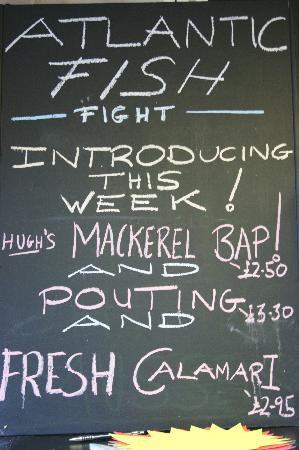 ATLANTIC
FISH
FIGHT
INTRODUCING
THIS
WEEK!
HUGH'S MACKEREL BAP!
AND £2.50
POUTING
AND £3.30
FRESH CALAMARI
£2.95